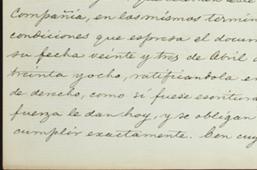 Compañía, en los mismos términ
condiciones que espresa el docum
su fecha veinte y tres de Abril d
treinta y ocho, ratificándola en
de derecho, como si fuese escritura
fuerza le dan hoy, y se obligan
cumplir exactamente. En cuy